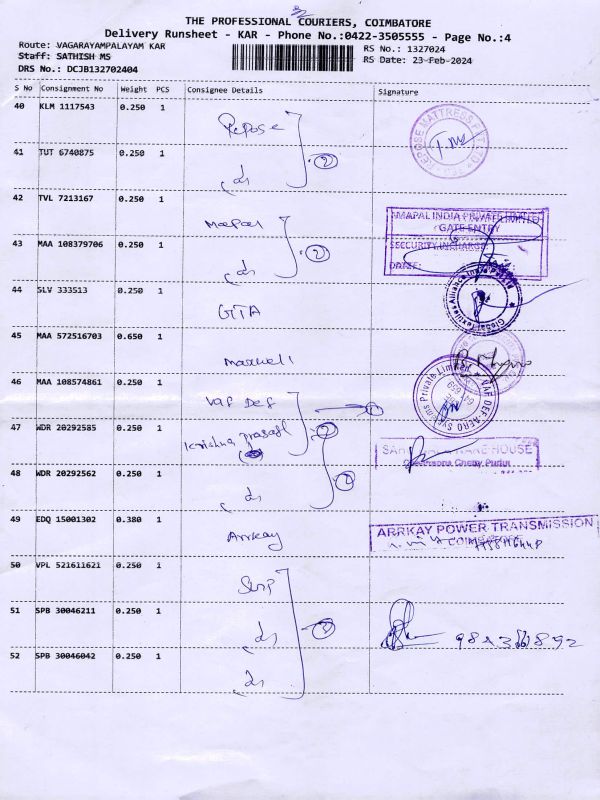 THE PROFESSIONAL COURIERS, COIMBATORE
Delivery Runsheet - KAR - Phone No.:0422-3505555 - Page No.:4
Route: VAGARAYAMPALAYAM KAR
RS No.: 1327024
Staff: SATHISH MS
RS Date: 23-Feb-2024
DRS No.: DCJB132702404
S No Consignment No Weight PCS Consignee Details Signature
40 KLM 1117543 0.250 1 Repose
REPOSE MATTRESS PVT. LTD
41 TUT 6740875 0.250 1 do (2)
42 TVL 7213167 0.250 1 Mapal
MAPAL INDIA PRIVATE LIMITED
GATE ENTRY
43 MAA 108379706 0.250 1 do (2)
SECURITY INCHARGE
DATE:
44 SLV 333513 0.250 1 GTA
Global Textiles Alliance India Private
45 MAA 572516703 0.650 1 Maxwell
46 MAA 108574861 0.250 1 Vaf Def (1)
VAF DEF-AERO Systems Private Limited
47 WDR 20292585 0.250 1 Krishna prasath (2)
WARE HOUSE
48 WDR 20292562 0.250 1 do (2)
49 EDQ 15001302 0.380 1 Arrkay
ARRKAY POWER TRANSMISSION
COIMBATORE
50 VPL 521611621 0.250 1
51 SPB 30046211 0.250 1 do (3)
52 SPB 30046042 0.250 1 do